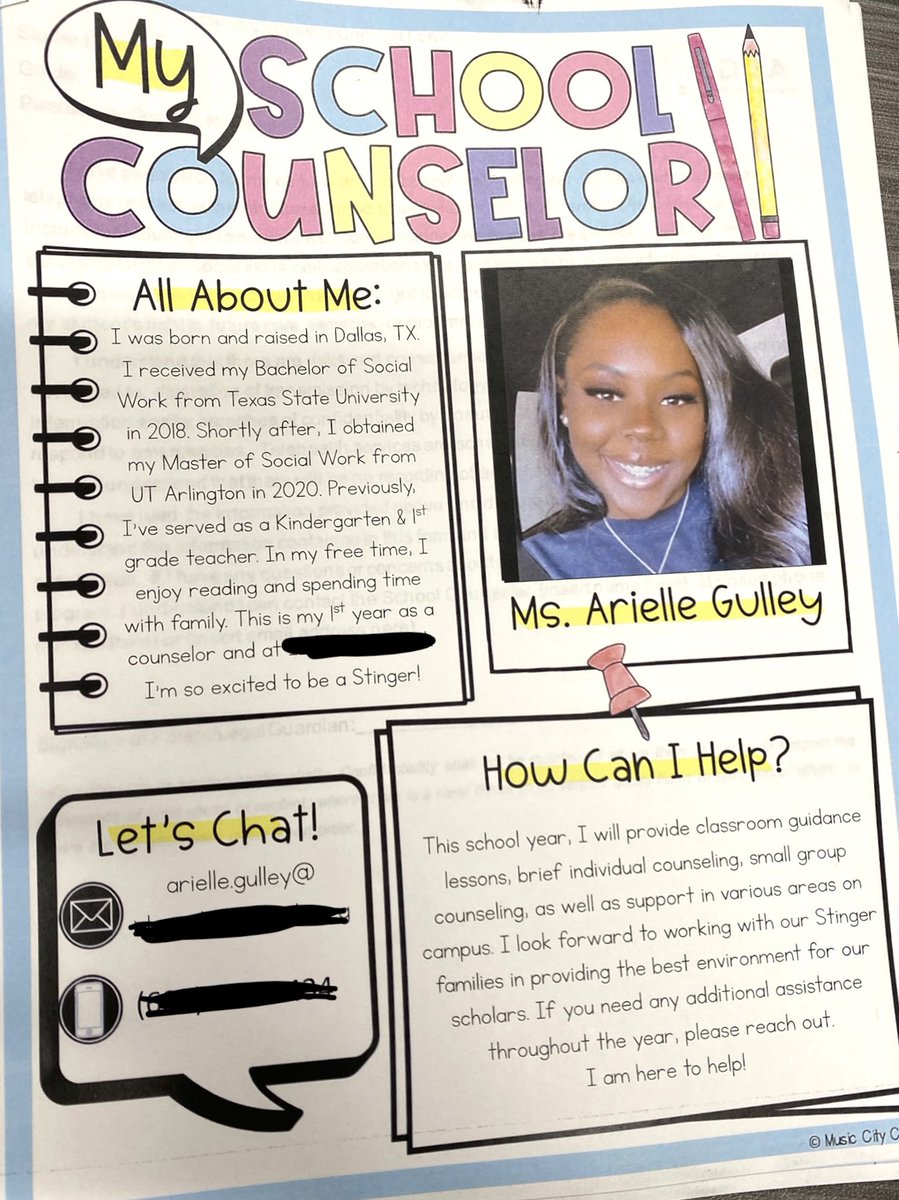 My
SCHOOL
COUNSELOR
All About Me:
I was born and raised in Dallas, TX.
I received my Bachelor of Social
Work from Texas State University
in 2018. Shortly after, I obtained
my Master of Social Work from
UT Arlington in 2020. Previously,
I've served as a Kindergarten & 1st
grade teacher. In my free time, I
enjoy reading and spending time
with family. This is my 1st year as a
counselor and at
I'm so excited to be a Stinger!
Ms. Arielle Gulley
Let's Chat!
arielle.gulley@
How Can I Help?
This school year, I will provide classroom guidance
lessons, brief individual counseling, small group
counseling, as well as support in various areas on
campus. I look forward to working with our Stinger
families in providing the best environment for our
scholars. If you need any additional assistance
throughout the year, please reach out.
I am here to help!
© Music City C